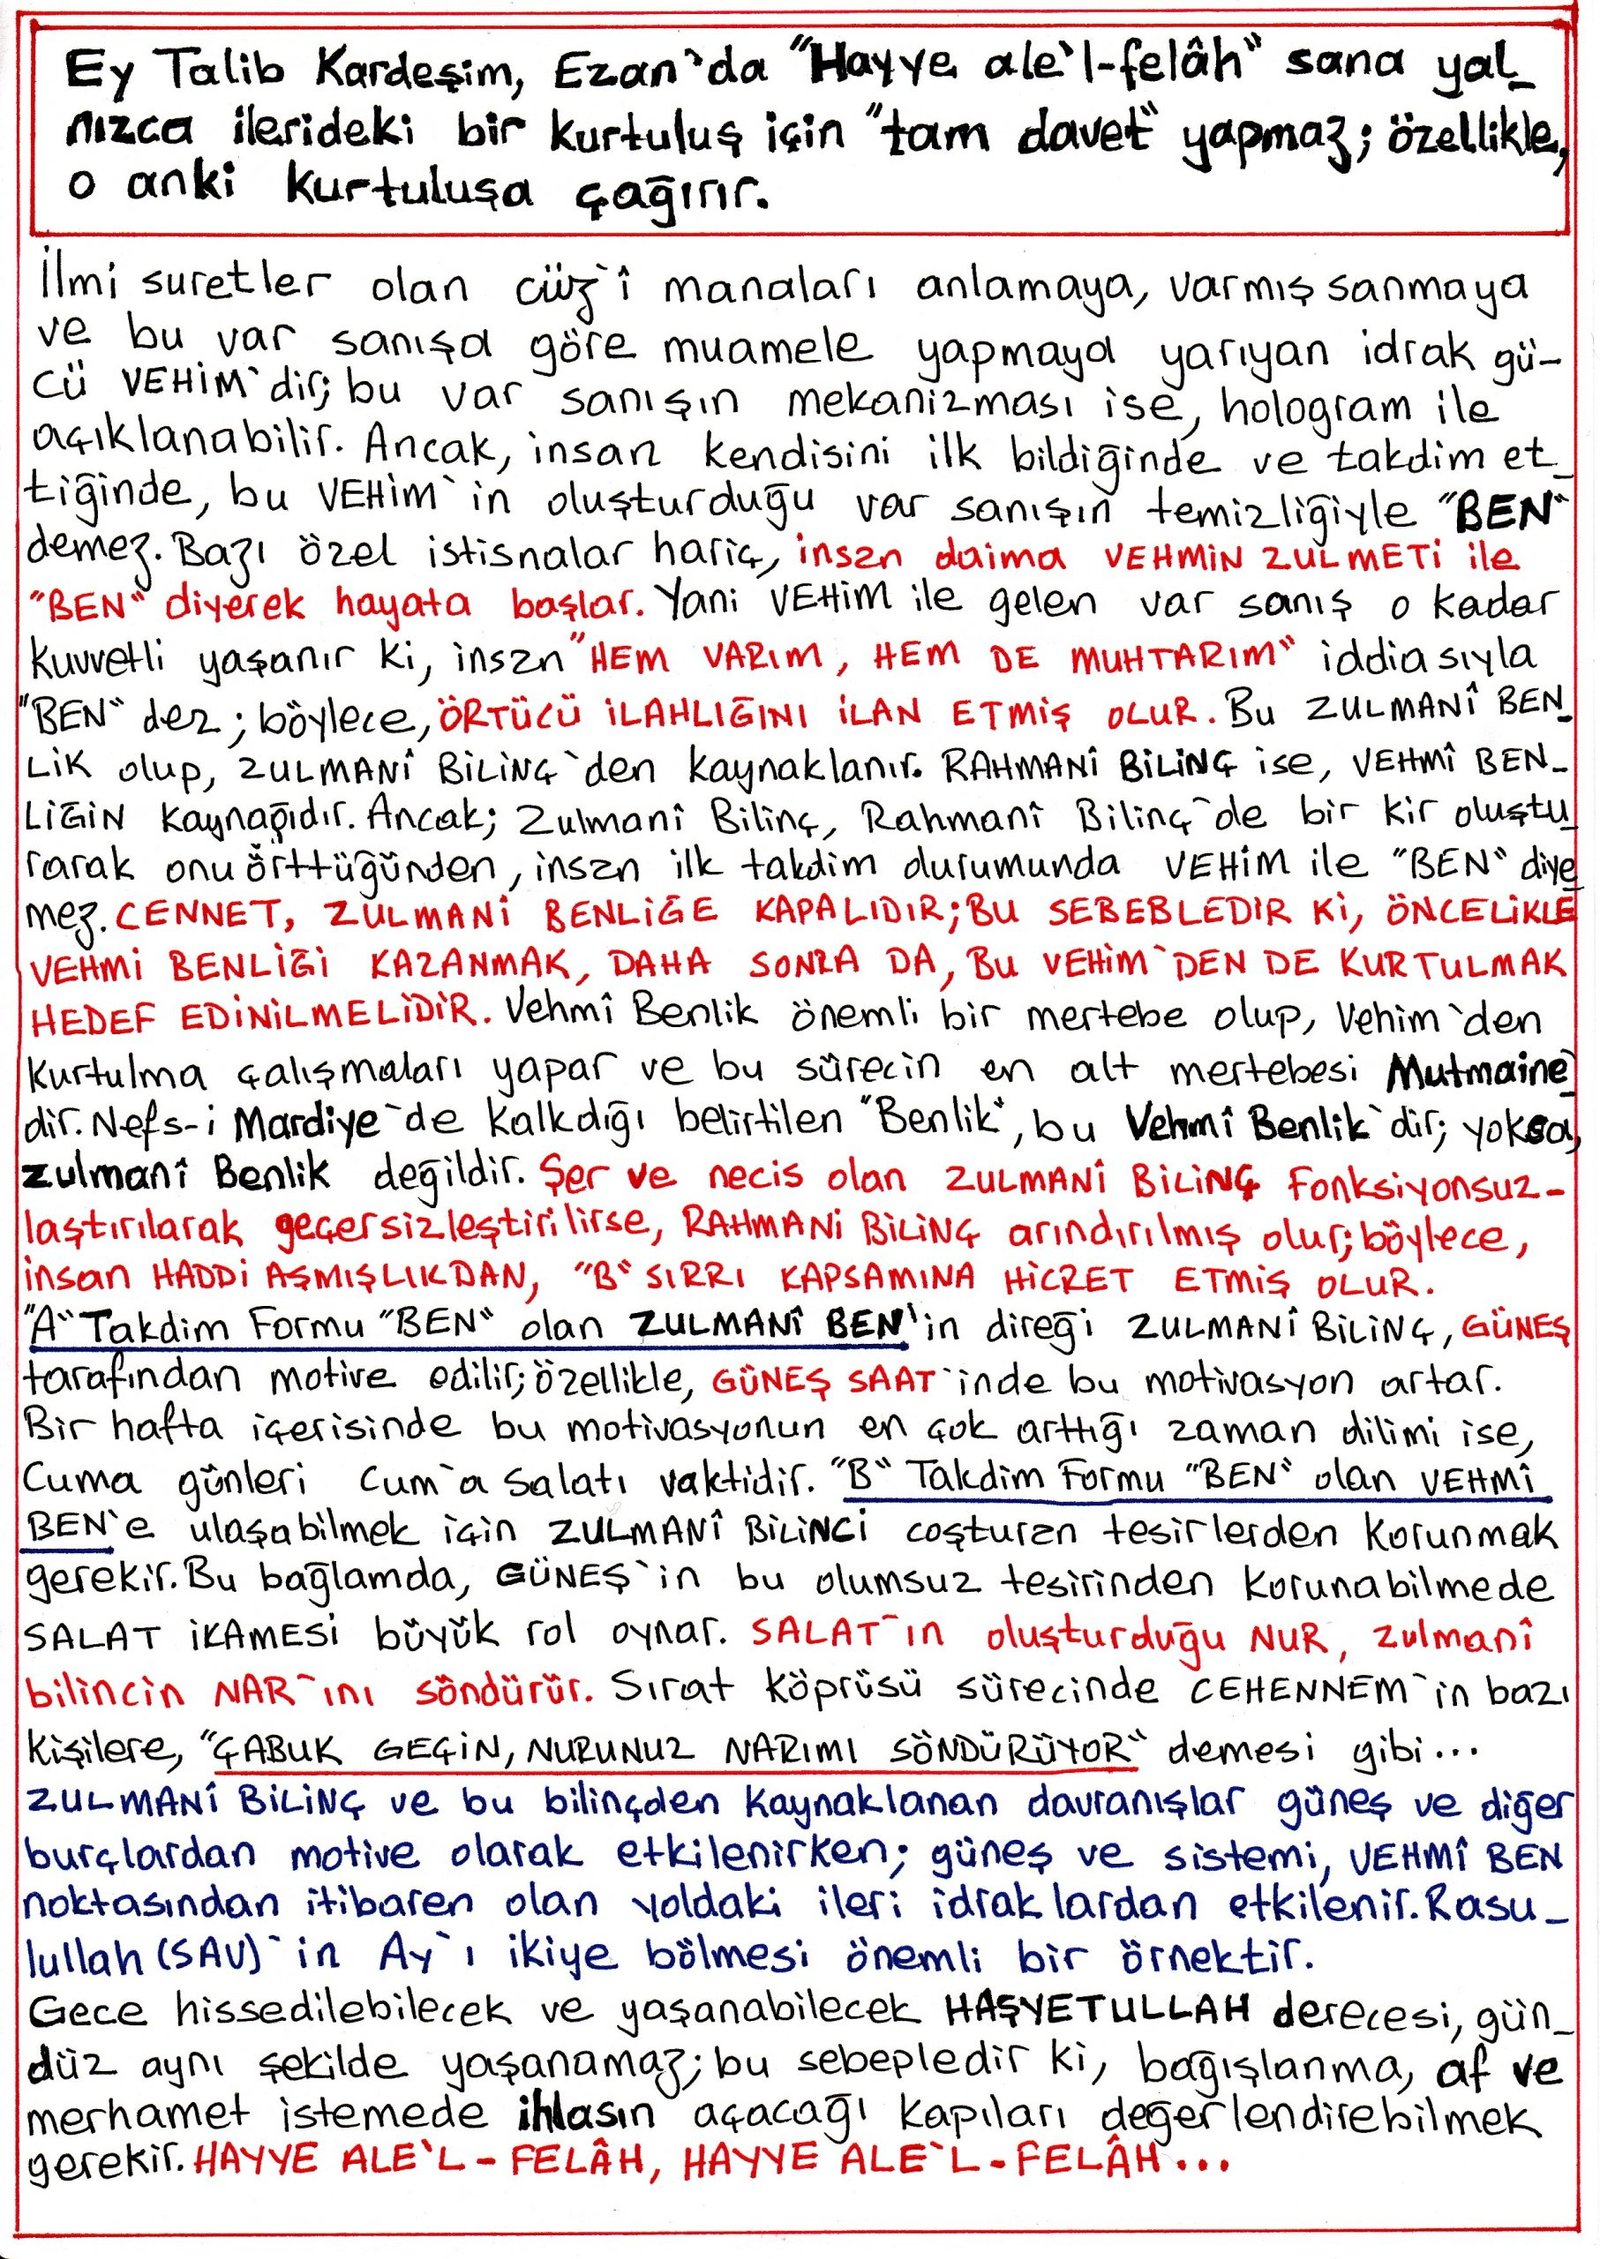 Ey Talib Kardeşim, Ezan`da "Hayye ale`l-felâh" sana yal_
nızca ilerideki bir kurtuluş için "tam davet" yapmaz; özellikle,
o anki kurtuluşa çağırır.
İlmi suretler olan cüz`î manaları anlamaya, varmış sanmaya
ve bu var sanışa göre muamele yapmaya yarıyan idrak gü-
cü VEHİM`dir; bu var sanışın mekanizması ise, hologram ile
açıklanabilir. Ancak, insan kendisini ilk bildiğinde ve takdim et_
tiğinde, bu VEHİM`in oluşturduğu var sanışın temizliğiyle "BEN"
demez. Bazı özel istisnalar hariç, insan daima VEHMİN ZULMETİ ile
"BEN" diyerek hayata başlar. Yani VEHİM ile gelen var sanış o kadar
kuvvetli yaşanır ki, insan "HEM VARIM, HEM DE MUHTARIM" iddiasıyla
"BEN" der; böylece, ÖRTÜCÜ İLAHLIĞINI İLAN ETMİŞ OLUR. Bu ZULMANÎ BEN_
LİK olup, ZULMANÎ BİLİNÇ`den kaynaklanır. RAHMANÎ BİLİNÇ ise, VEHMÎ BEN_
LİĞİN kaynağıdır. Ancak; Zulmanî Bilinç, Rahmanî Bilinç`de bir kir oluştu_
rarak onu örttüğünden, insan ilk takdim durumunda VEHİM ile "BEN" diye_
mez. CENNET, ZULMANİ BENLİĞE KAPALIDIR; BU SEBEBLEDIR Kİ, ÖNCELİKLE
VEHMİ BENLİĞİ KAZANMAK, DAHA SONRA DA, BU VEHİM`DEN DE KURTULMAK
HEDEF EDİNİLMELİDİR. Vehmî Benlik önemli bir mertebe olup, Vehim`den
kurtulma çalışmaları yapar ve bu sürecin en alt mertebesi Mutmaine`
dir. Nefs-i Mardiye`de kalkdığı belirtilen "Benlik", bu Vehmî Benlik`dir; yoksa,
zulmanî Benlik değildir. Şer ve necis olan ZULMANÎ BİLİNÇ fonksiyonsuz-
laştırılarak geçersizleştirilirse, RAHMANİ BİLİNÇ arındırılmış olur; böylece,
insan HADDİ AŞMIŞLIKDAN, "B" SIRRI KAPSAMINA HİCRET ETMİŞ OLUR.
"A" Takdim Formu "BEN" olan ZULMANÎ BEN'in direği ZULMANİ BİLİNÇ, GÜNEŞ
tarafından motive edilir; özellikle, GÜNEŞ SAAT`inde bu motivasyon artar.
Bir hafta içerisinde bu motivasyonun en çok arttığı zaman dilimi ise,
Cuma günleri Cum`a Salatı vaktidir. "B" Takdim Formu "BEN" olan VEHMÎ
BEN`e ulaşabilmek için ZULMANÎ BİLİNCİ coşturan tesirlerden korunmak
gerekir. Bu bağlamda, GÜNEŞ`in bu olumsuz tesirinden korunabilmede
SALAT İKAMESİ büyük rol oynar. SALAT`ın oluşturduğu NUR, zulmanî
bilincin NAR`ını söndürür. Sırat köprüsü sürecinde CEHENNEM`in bazı
kişilere, "ÇABUK GEÇİN, NURUNUZ NARIMI SÖNDÜRÜYOR" demesi gibi...
ZULMANÎ BİLİNÇ ve bu bilinçden kaynaklanan davranışlar güneş ve diğer
burçlardan motive olarak etkilenirken; güneş ve sistemi, VEHMÎ BEN
noktasından itibaren olan yoldaki ileri idraklardan etkilenir. Rasu_
lullah (SAV)`in Ay`ı ikiye bölmesi önemli bir örnektir.
Gece hissedilebilecek ve yaşanabilecek HAŞYETULLAH derecesi, gün_
düz aynı şekilde yaşanamaz; bu sebepledir ki, bağışlanma, af ve
merhamet istemede ihlasın açacağı kapıları değerlendirebilmek
gerekir. HAYYE ALE`L-FELÂH, HAYYE ALE`L-FELÂH...